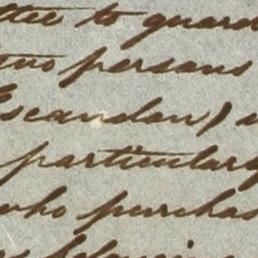 ttee to guard
two persons
Escandon)
particularly
who purchas